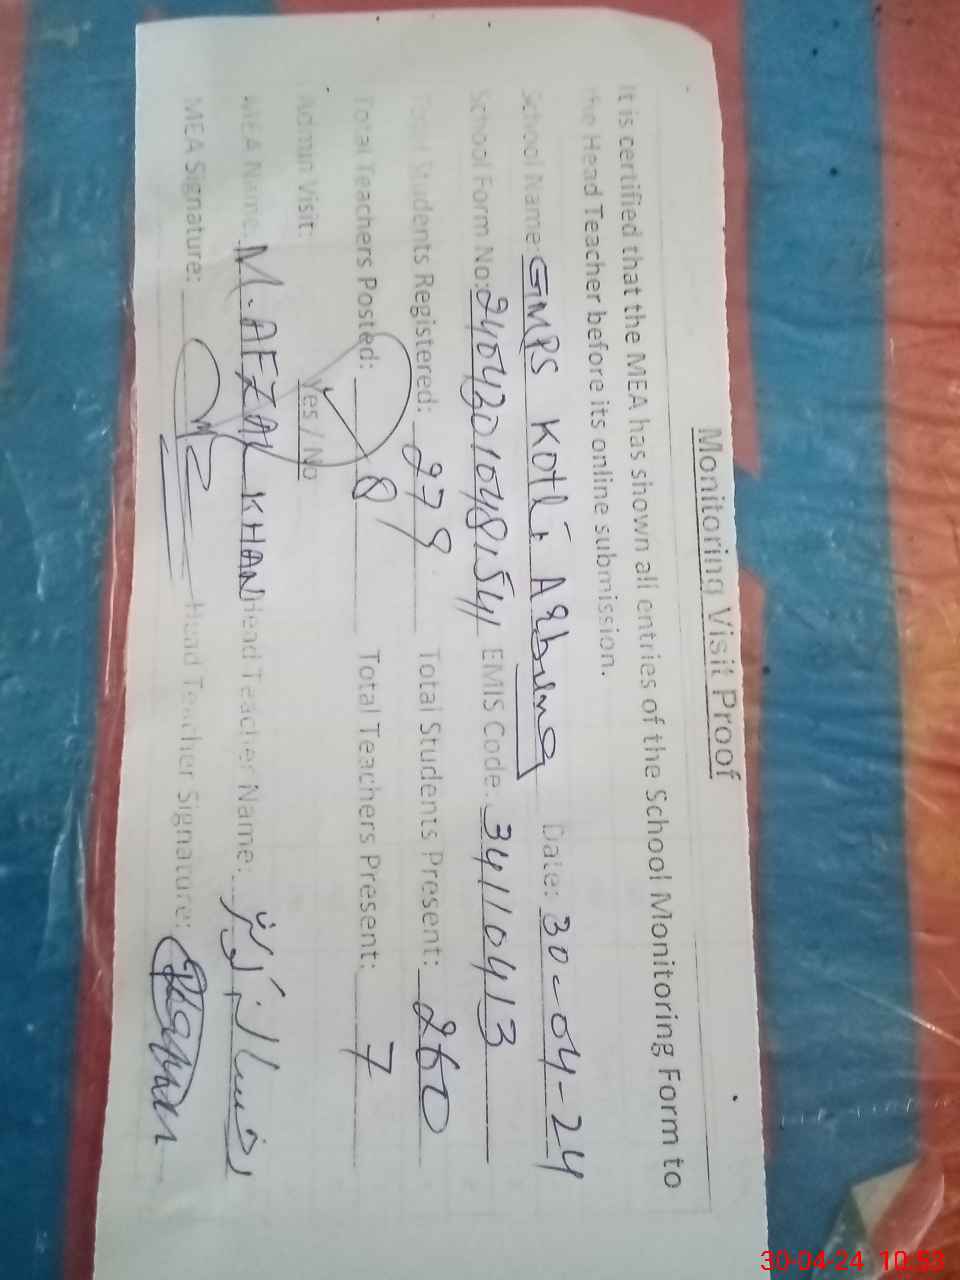 Monitoring Visit Proof
It is certified that the MEA has shown all entries of the School Monitoring Form to
the Head Teacher before its online submission.
School Name: GMPS Kotli Date: 30-04-24
School Form No: EMIS Code: 34110413
Total Students Registered: 279 Total Students Present: 260
Total Teachers Posted: 8 Total Teachers Present: 7
Admin Visit: Yes / No
MEA Name: M. AFZAL KHAN Head Teacher Name:
MEA Signature: Head Teacher Signature:
30-04-24 10:53